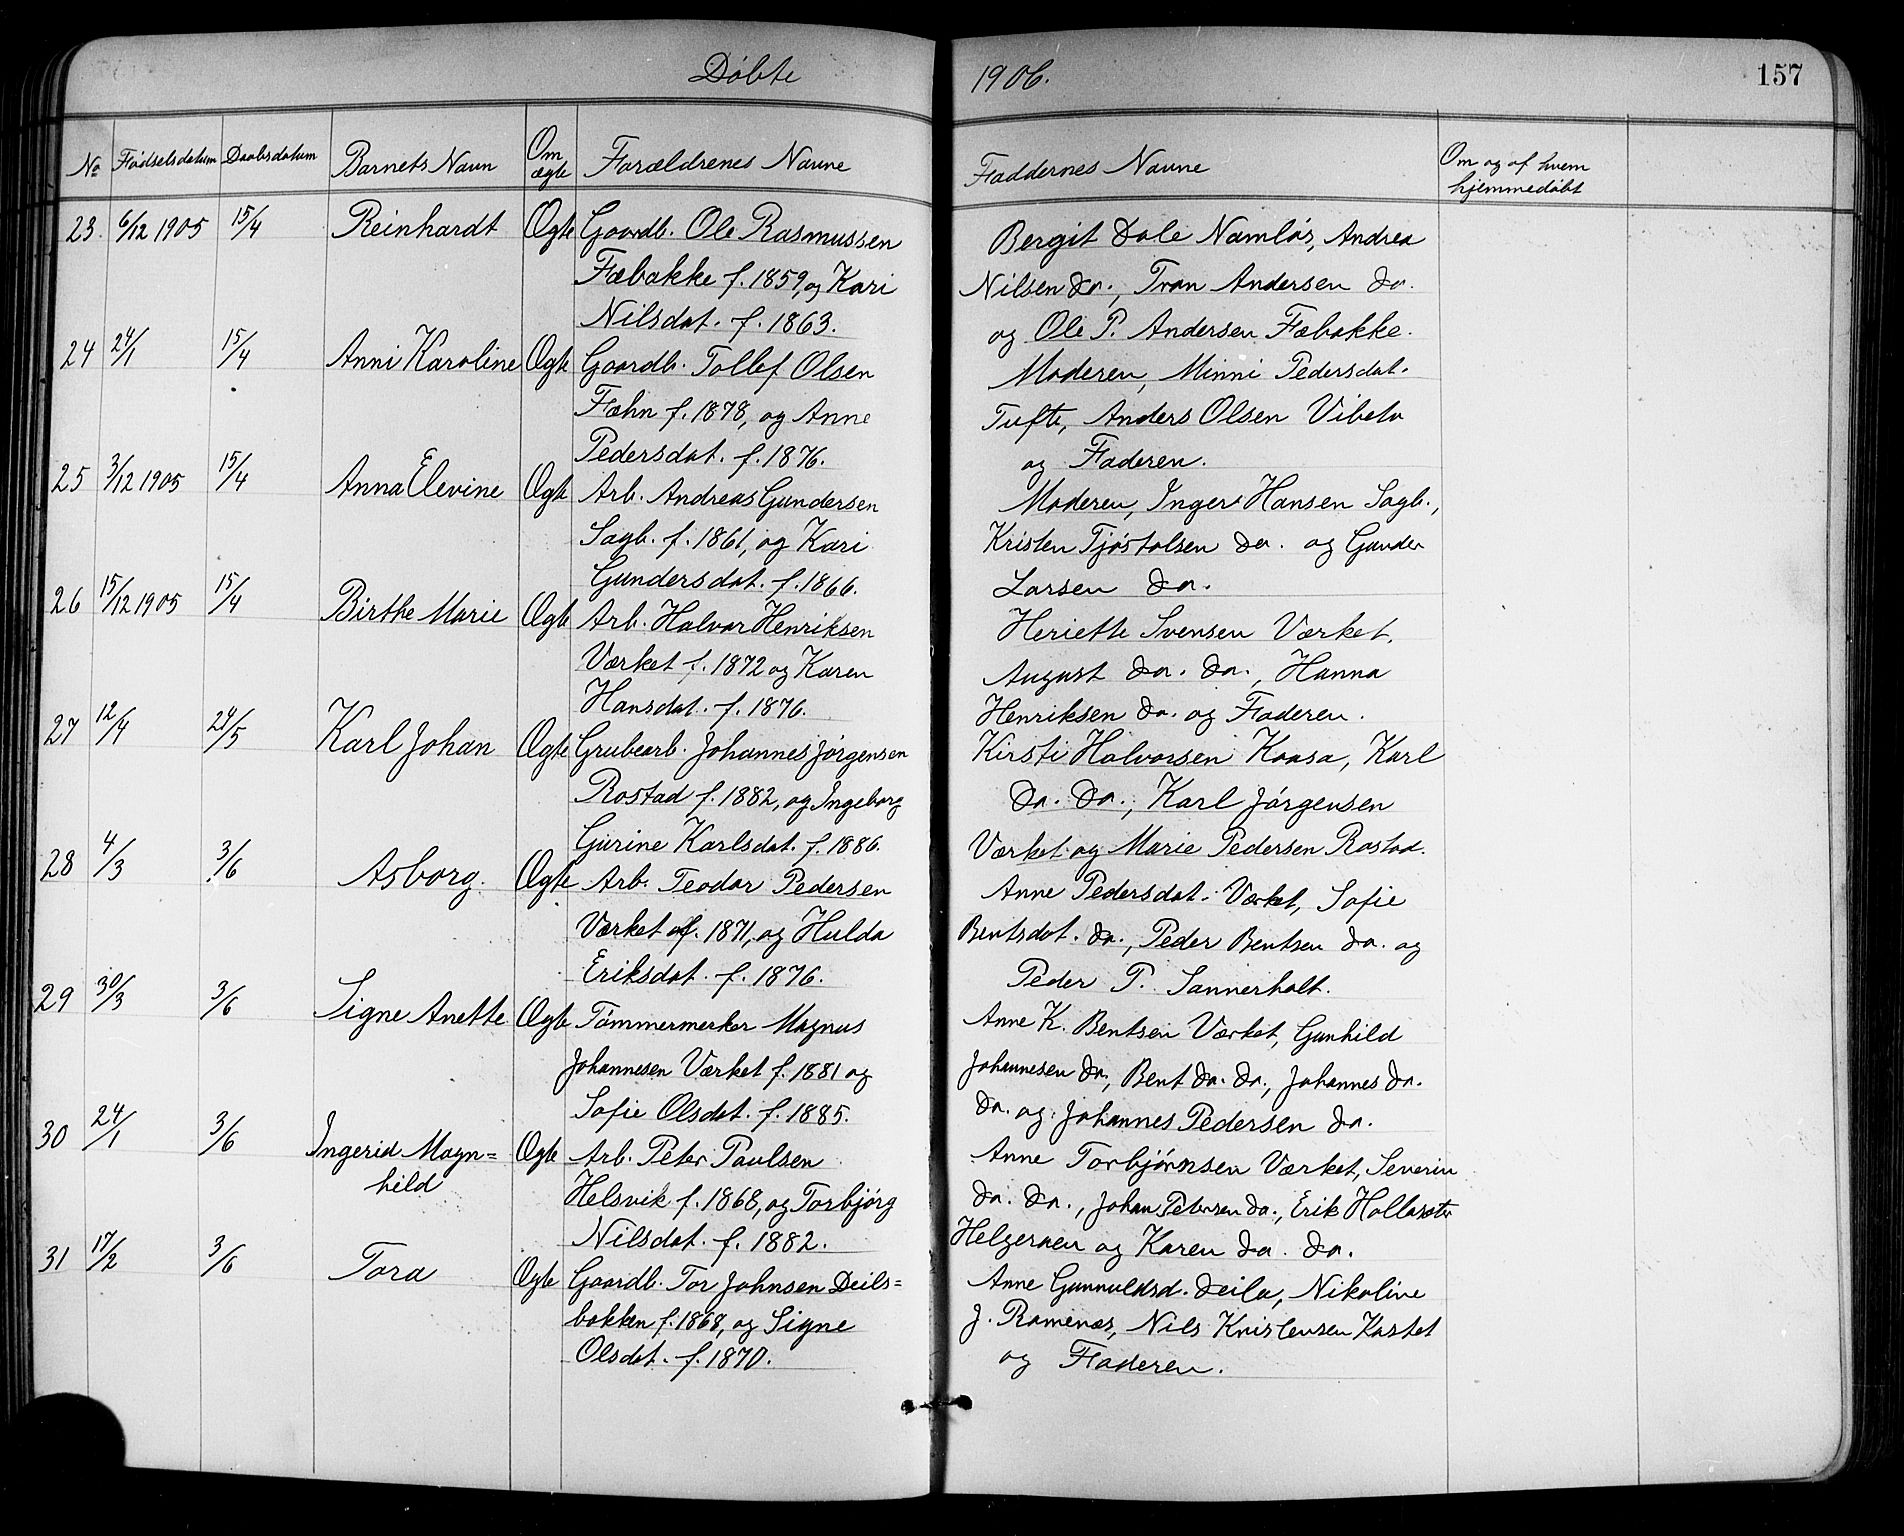 Døbte 1906. 157
No Fødselsdatum Daabsdatum Barnets Navn Om ægte Forældrenes Navne Faddernes Navne Om og af hvem hjemmedøbt
23. 6/12 1905 15/4 Reinhardt Ægte Gaardb. Ole Rasmussen
Fæbakke f. 1859, og Kari
Nilsdat. f. 1863.
Bergit Dale Namløs, Andrea
Nilsen do., Tran Andersen do.
og Ole P. Andersen Fæbakke.
24 24/1 15/4 Anni Karoline Ægte Gaardb. Tollef Olsen
Fæhn f. 1878, og Anne
Pedersdat. f. 1876.
Moderen, Minni Pedersdat.
Tufte, Anders Olsen Vibeto
og Faderen.
25 3/12 1905 15/4 Anna Elevine Ægte Arb. Andreas Gundersen
Sagb. f. 1861, og Kari
Gundersdat. f. 1866.
Moderen, Inger Hansen Sagb.,
Kristen Tjøstolsen do. og Gunder
Larsen do.
26 15/12 1905 15/4 Birthe Marie Ægte Arb. Halvor Henriksen
Værket f. 1872 og Karen
Hansdat. f. 1876.
Heriette Svensen Værket,
August do. do., Hanna
Henriksen do. og Faderen.
27 12/4 24/5 Karl Johan Ægte Grubearb. Johannes Jørgensen
Rostad f. 1882, og Ingeborg
Gurine Karlsdat. f. 1886.
Kirsti Halvorsen Kaasa, Karl
do. do., Karl Jørgensen
Værket og Marie Pedersen Rostad.
28 4/3 3/6 Asborg. Ægte Arb. Teodor Pedersen
Værket f. 1871, og Hulda
Eriksdat. f. 1876.
Anne Pedersdat. Værket, Sofie
Bentsdat. do., Peder Bentsen do. og
Peder P. Sannerholt.
29 30/3 3/6 Signe Anette Ægte Tømmermerker Magnus
Johannesen Værket f. 1881 og
Sofie Olsdat. f. 1885.
Anne K. Bentsen Værket, Gunhild
Johannesen do, Bent do. do., Johannes do.
do. og Johannes Pedersen do.
30 24/1 3/6 Ingerid Magn=
hild Ægte Arb. Peter Paulsen
Helsvik f. 1868, og Torbjørg
Nilsdat. f. 1882.
Anne Torbjørnsen Værket, Severin
do. do., Johan Petersen do., Erik
Helgeraen og Karen do. do.
31 17/2 3/6 Tora Ægte Gaardb. Tor Johnsen Deils=
bakken f. 1868, og Signe
Olsdat. f. 1870.
Anne Gunnuldsd. Deila, Nikoline
J. Ramenæs, Nils Kristensen Kastet
og Faderen.